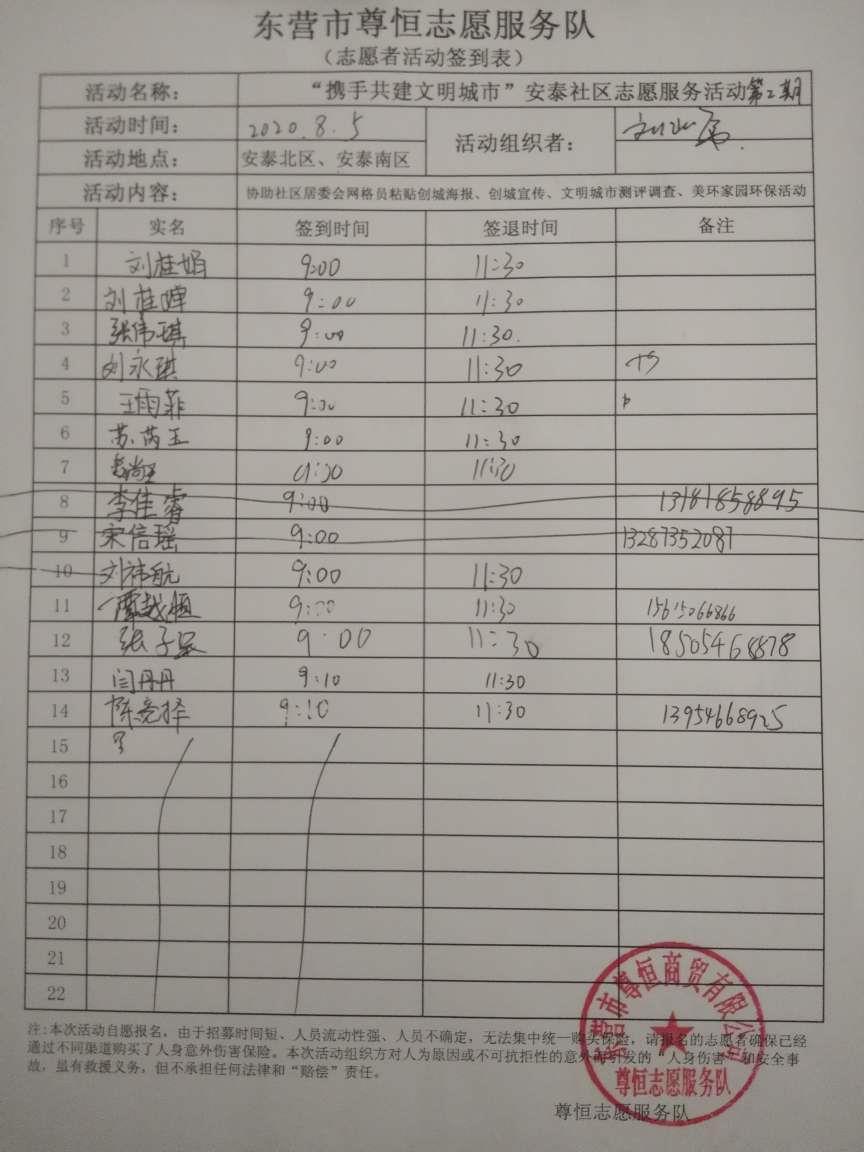 东营市尊恒志愿服务队
（志愿者活动签到表）
活动名称： “携手共建文明城市”安泰社区志愿服务活动第2期
活动时间： 2020.8.5 活动组织者：
活动地点： 安泰北区、安泰南区
活动内容： 协助社区居委会网格员粘贴创城海报、创城宣传、文明城市测评调查、美环家园环保活动
序号 实名 签到时间 签退时间 备注
1 刘桂娟 9:00 11:30
2 刘桂 9:00 11:30
3 张伟琪 9:00 11:30.
4 刘永琪 9:00 11:30
5 王雨菲 9:00 11:30
6 苏芮玉 9:00 11:30
7 9:30 11:30
8 李佳睿 9:00 13181858895
9 宋信瑶 9:00 13287352087
10 刘祎航 9:00 11:30
11 越恒 9:00 11:30 15615066866
12 张子 9:00 11:30 18505468878
13 闫丹丹 9:10 11:30
14 陈亮择 9:10 11:30 13954668925
15
16
17
18
19
20
21
22
注:本次活动自愿报名，由于招募时间短、人员流动性强、人员不确定，无法集中统一购买保险，请报名的志愿者确保已经
通过不同渠道购买了人身意外伤害保险。本次活动组织方对人为原因或不可抗拒性的意外而引发的“人身伤害”和安全事
故，虽有救援义务，但不承担任何法律和“赔偿”责任。
东营市尊恒商贸有限公司
尊恒志愿服务队
尊恒志愿服务队